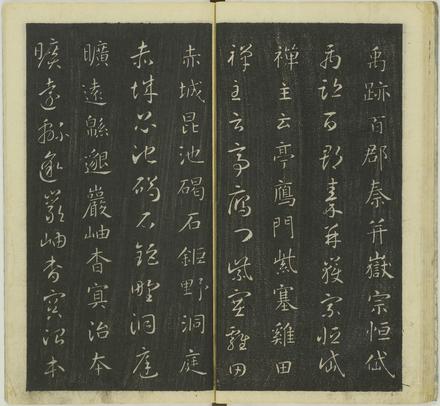 禹跡百郡秦并嶽宗恒岱
禹跡百郡秦并嶽宗恒岱
禪主云亭鴈門紫塞雞田
禪主云亭鴈門紫塞雞田
赤城昆池碣石鉅野洞庭
赤城昆池碣石鉅野洞庭
曠遠緜邈巖岫杳冥治本
曠遠緜邈巖岫杳冥治本